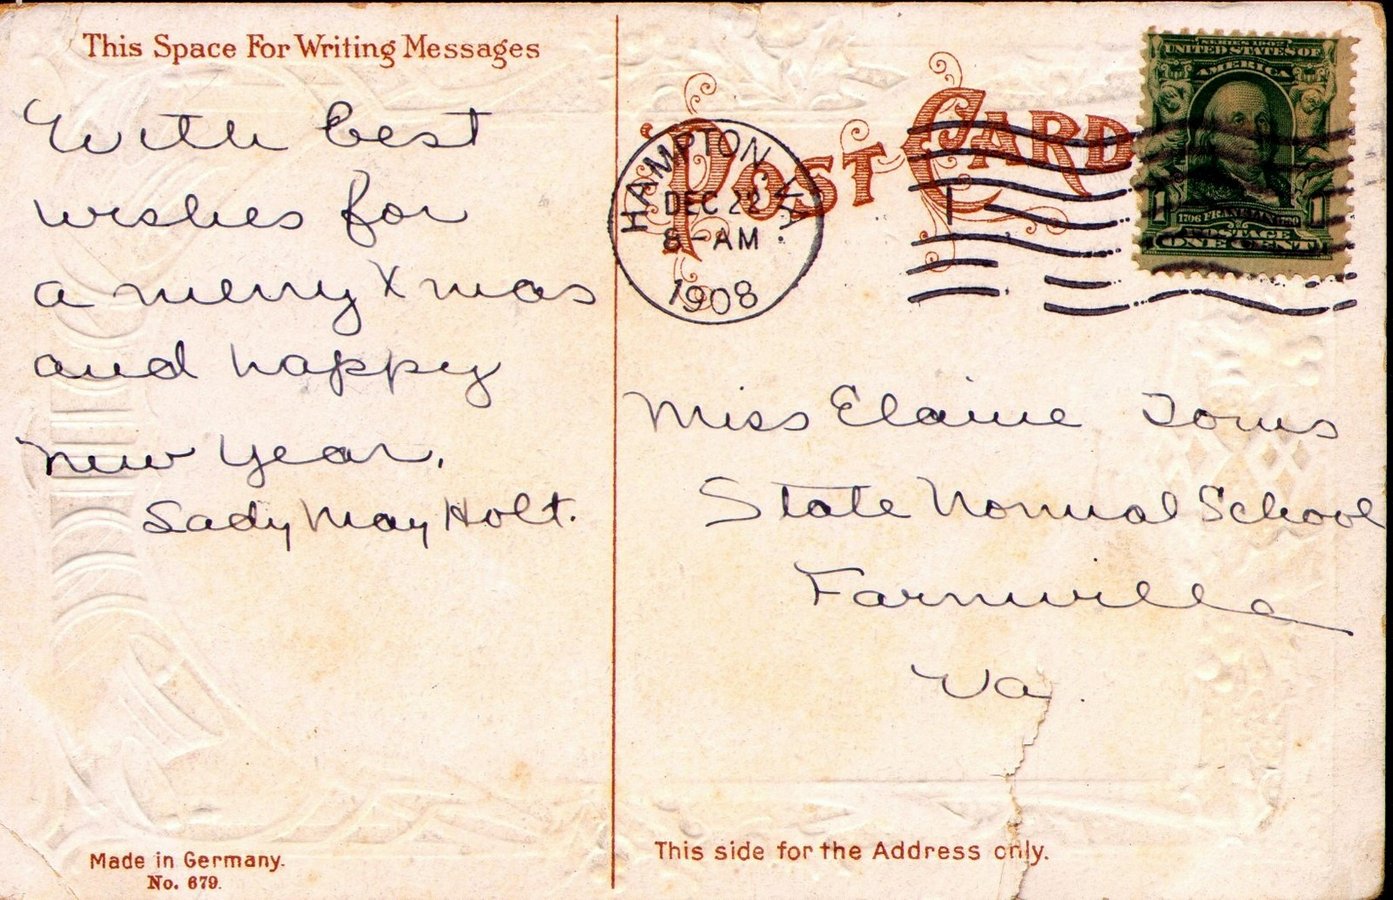 This Space For Writing Messages
With best
wishes for
a merry Xmas
and happy
new year.
Sady May Holt.
Made in Germany.
No. 679.
POST CARD
HAMPTON VA.
DEC 22
8-AM
1908
1
SERIES 1902
UNITED STATES OF
AMERICA
1706 FRANKLIN 1790
POSTAGE
1 1
ONE CENT
Miss Elaine Toms
State Normal School
Farmville
Va.
This side for the Address only.